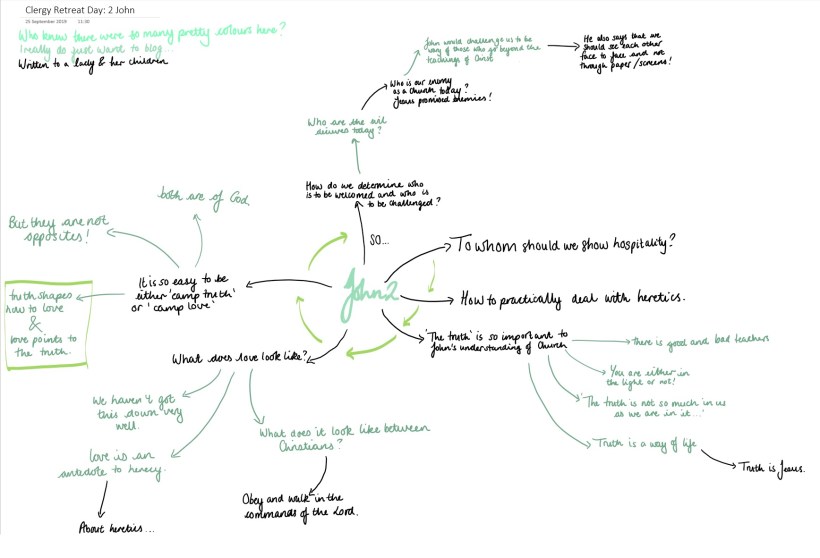 Clergy Retreat Day: 2 John
25 September 2019 11:30
Who knew there were so many pretty colours here?
I really do just want to blog...
Written to a lady & her children
John would challenge us to be
wary of those who go beyond the
teachings of Christ
He also says that we
should see each other
face to face and not
through paper/screens!
Who is our enemy
as a Church today?
Jesus promised enemies!
Who are the evil
deceivers today?
How do we determine who
is to be welcomed and who is
to be challenged?
SO...
both are of God
But they are not
opposites!
It is so easy to be
either 'camp truth'
or 'camp love'
truth shapes
how to love
&
love points to
the truth.
John 2
To whom should we show hospitality?
How to practically deal with heretics.
'The truth' is so important to
John's understanding of Church
there is good and bad teachers
You are either in
the light or not!
'The truth is not so much in us
as we are in it...'
Truth is a way of life
Truth is Jesus.
What does love look like?
We haven't got
this down very
well.
love is an
antedote to herecy.
About heretics...
What does it look like between
Christians?
Obey and walk in the
commands of the Lord.